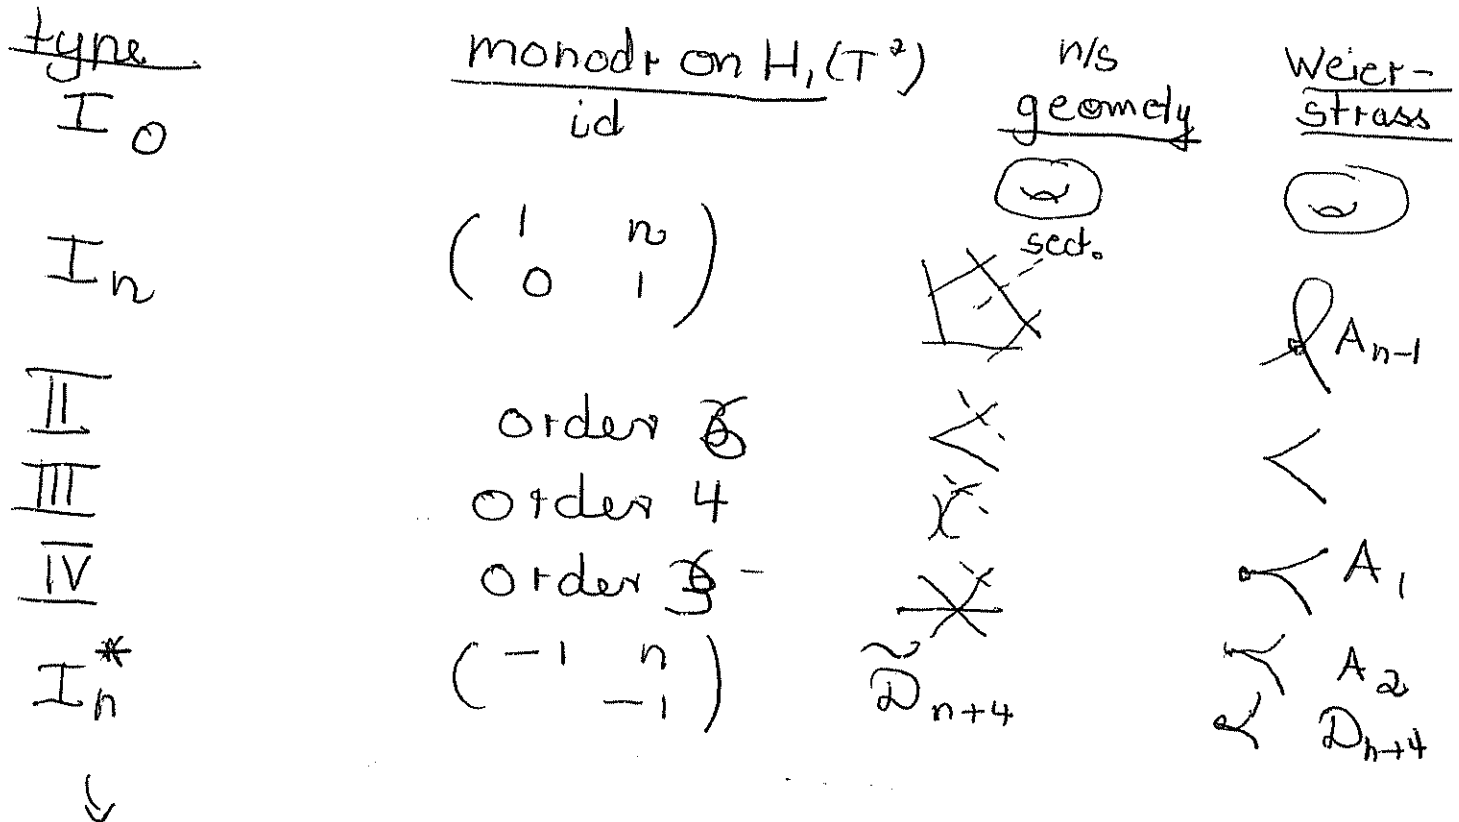 type monodr on H₁(T²) n/s geometry Weier-strass
I₀ id
sect.
Iₙ ( 1 n 0 1 ) Aₙ₋₁
II order 6
III order 4 A₁
IV order 3 – A₂
Iₙ* ( –1 n –1 ) D̃ₙ₊₄ Dₙ₊₄
↓